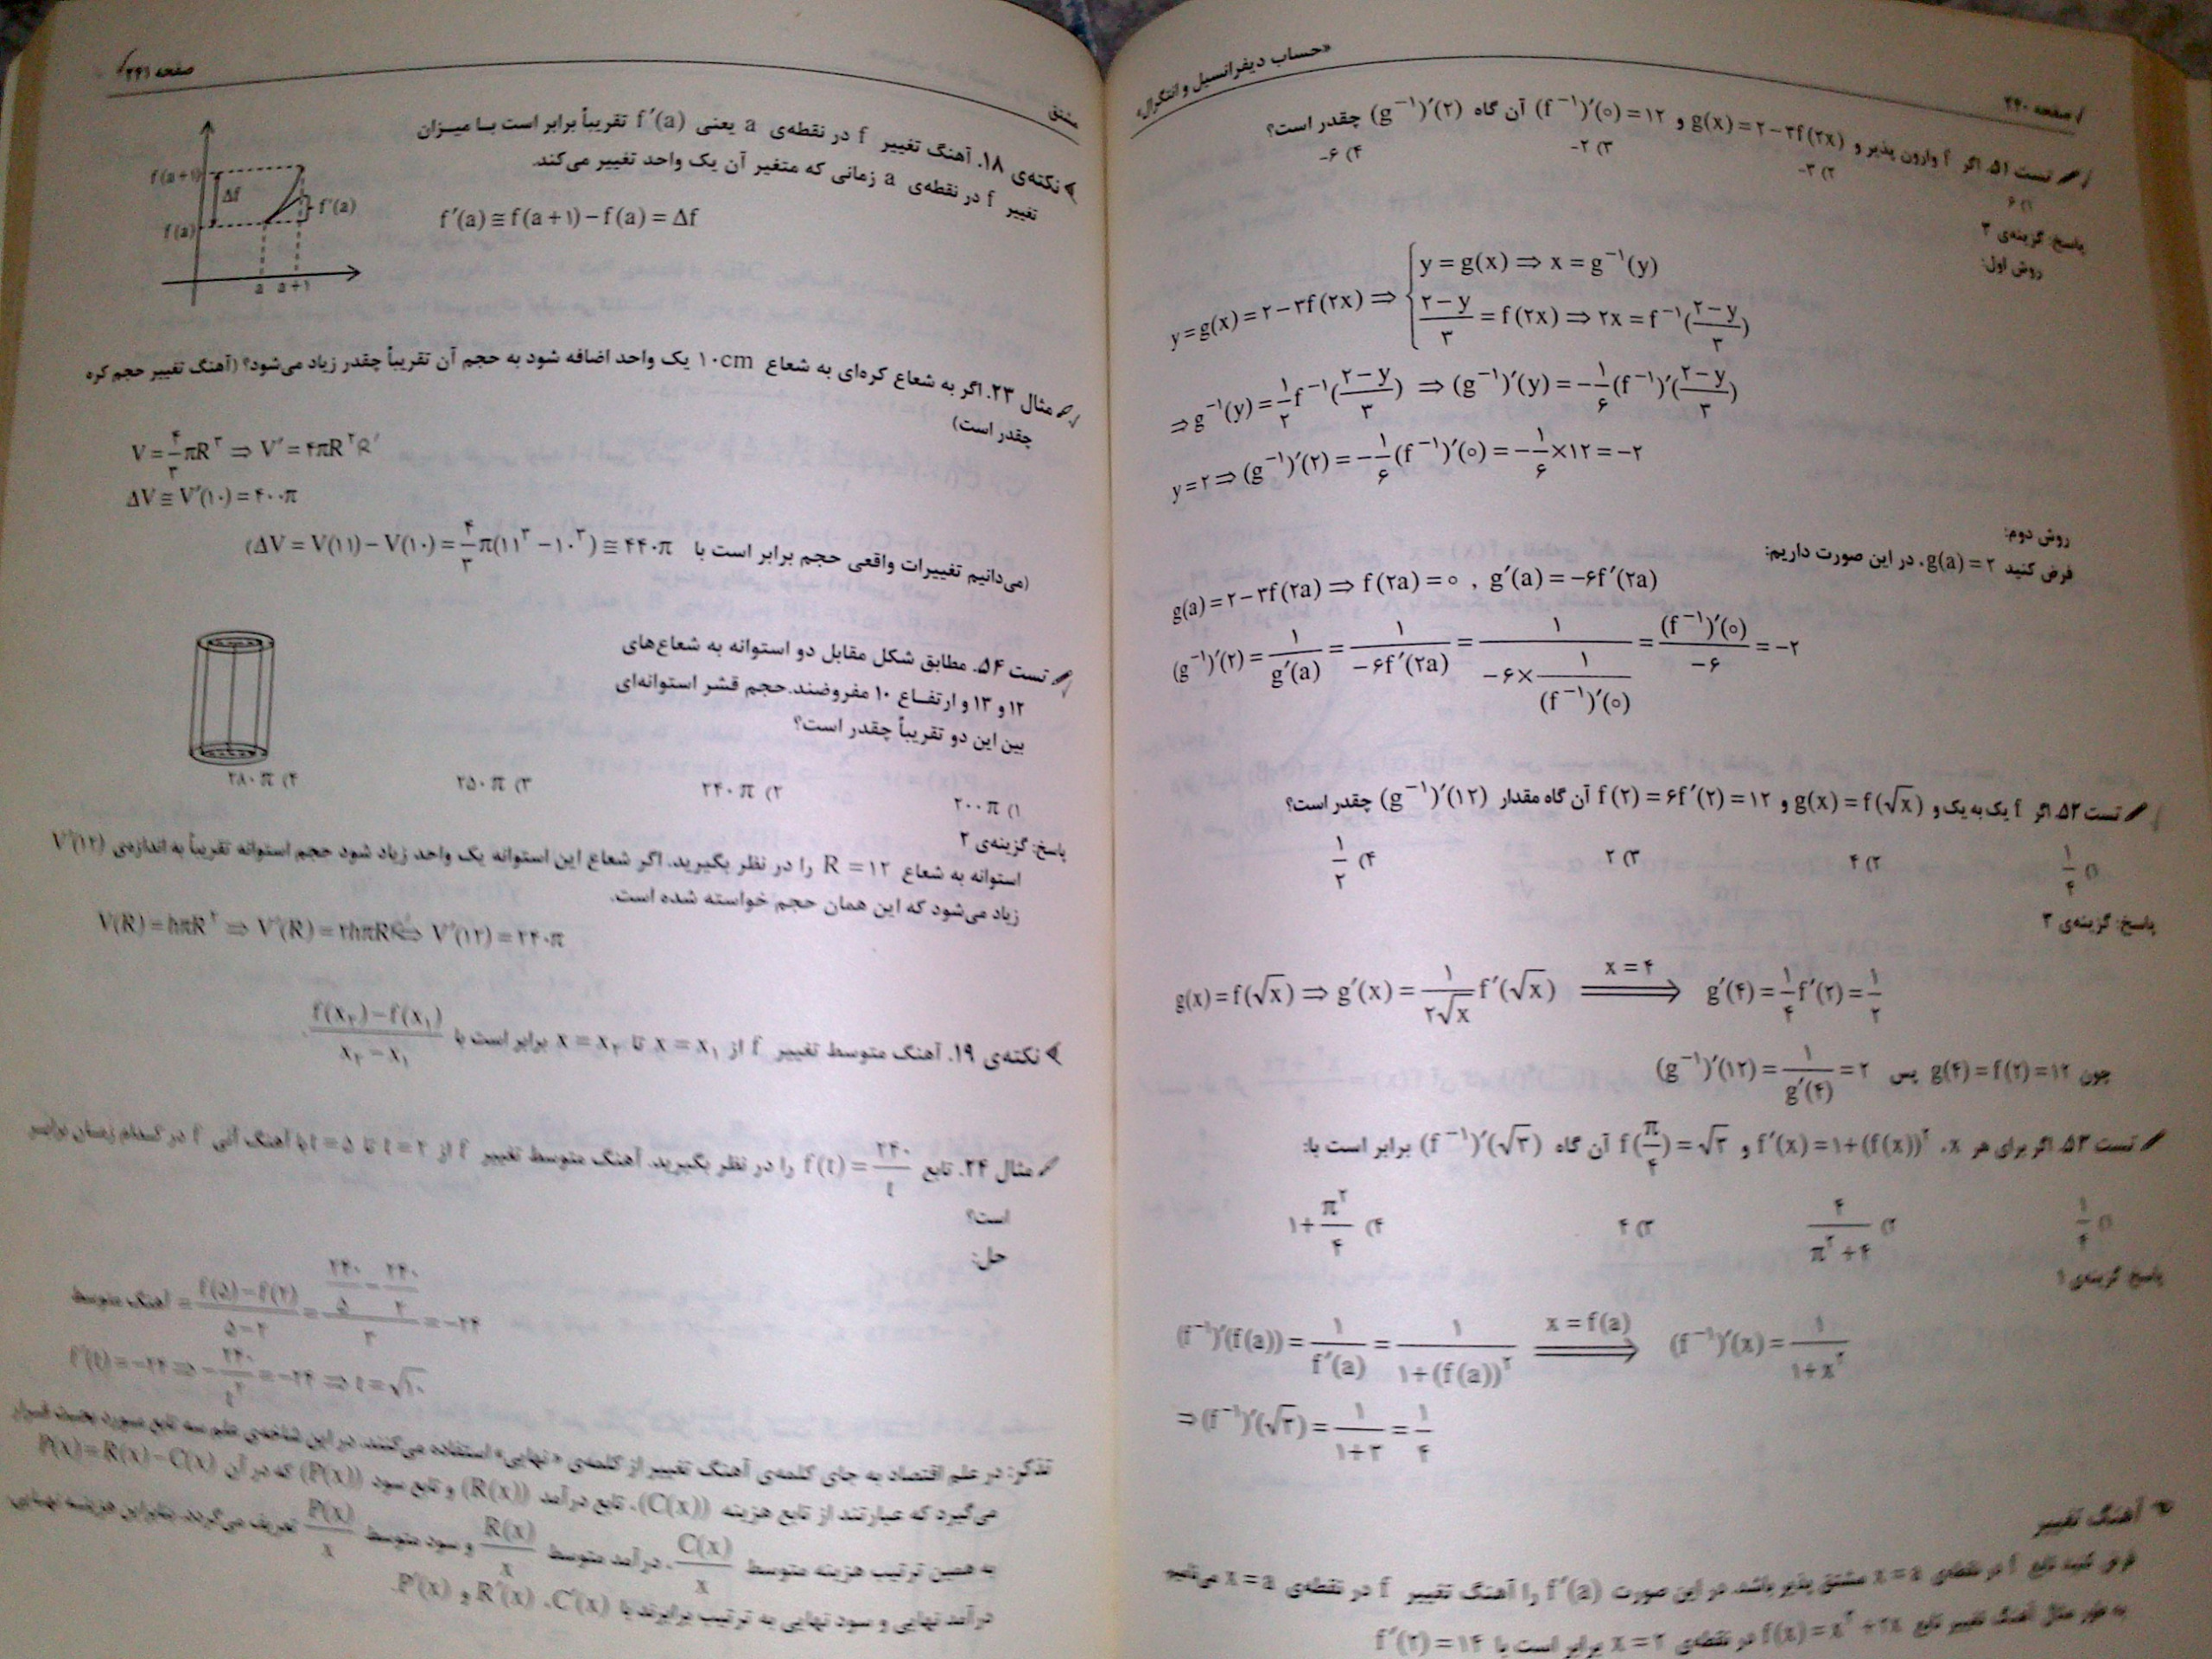 صفحه ۲۴۰
«حساب دیفرانسیل و انتگرال»
تست ۵۱. اگر f وارون پذیر و g(x) = ۲ − ۳f(۲x) و (f⁻¹)′(۰) = ۱۲ آن گاه (g⁻¹)′(۲) چقدر است؟
۱) ۶ ۲) ۳− ۳) ۲− ۴) ۶−
پاسخ: گزینه‌ی ۳
روش اول:
y = g(x) = ۲ − ۳f(۲x) ⇒ { y = g(x) ⇒ x = g⁻¹(y)
(۲−y)/۳ = f(۲x) ⇒ ۲x = f⁻¹((۲−y)/۳)
⇒ g⁻¹(y) = ۱/۲ f⁻¹((۲−y)/۳) ⇒ (g⁻¹)′(y) = −۱/۶ (f⁻¹)′((۲−y)/۳)
y = ۲ ⇒ (g⁻¹)′(۲) = −۱/۶ (f⁻¹)′(۰) = −۱/۶ × ۱۲ = −۲
روش دوم:
فرض کنید g(a) = ۲، در این صورت داریم:
g(a) = ۲ − ۳f(۲a) ⇒ f(۲a) = ۰ , g′(a) = −۶f′(۲a)
(g⁻¹)′(۲) = ۱/g′(a) = ۱/(−۶f′(۲a)) = ۱/(−۶ × ۱/(f⁻¹)′(۰)) = (f⁻¹)′(۰)/−۶ = −۲
تست ۵۲. اگر f یک به یک و g(x) = f(√x) و f(۲) = ۶f′(۲) = ۱۲ آن گاه مقدار (g⁻¹)′(۱۲) چقدر است؟
۱) ۱/۴ ۲) ۴ ۳) ۲ ۴) ۱/۲
پاسخ: گزینه‌ی ۳
g(x) = f(√x) ⇒ g′(x) = ۱/(۲√x) f′(√x) x = ۴ ⟹ g′(۴) = ۱/۴ f′(۲) = ۱/۲
چون g(۴) = f(۲) = ۱۲ پس (g⁻¹)′(۱۲) = ۱/g′(۴) = ۲
تست ۵۳. اگر برای هر x، f′(x) = ۱ + (f(x))² و f(π/۴) = √۳ آن گاه (f⁻¹)′(√۳) برابر است با:
۱) ۱/۴ ۲) ۴/(π²+۴) ۳) ۴ ۴) ۱ + π²/۴
پاسخ: گزینه‌ی ۱
(f⁻¹)′(f(a)) = ۱/f′(a) = ۱/(۱+(f(a))²) x = f(a) ⟹ (f⁻¹)′(x) = ۱/(۱+x²)
⇒ (f⁻¹)′(√۳) = ۱/(۱+۳) = ۱/۴
آهنگ تغییر
فرض کنید تابع f در نقطه‌ی x = a مشتق پذیر باشد. در این صورت f′(a) را آهنگ تغییر f در نقطه‌ی x = a می‌نامیم
به طور مثال آهنگ تغییر تابع در نقطه‌ی x = ۲ برابر است با f′(۲) = ۱۴
مشتق
صفحه ۲۴۱
نکته‌ی ۱۸. آهنگ تغییر f در نقطه‌ی a یعنی f′(a) تقریباً برابر است با میزان
تغییر f در نقطه‌ی a زمانی که متغیر آن یک واحد تغییر می‌کند.
f′(a) ≅ f(a+۱) − f(a) = Δf
f(a+۱)
Δf
f′(a)
f(a)
a a+۱
مثال ۲۳. اگر به شعاع کره‌ای به شعاع ۱۰cm یک واحد اضافه شود به حجم آن تقریباً چقدر زیاد می‌شود؟ (آهنگ تغییر حجم کره
چقدر است)
V = ۴/۳ πR³ ⇒ V′ = ۴πR² R′
ΔV ≅ V′(۱۰) = ۴۰۰π
(می‌دانیم تغییرات واقعی حجم برابر است با ΔV = V(۱۱) − V(۱۰) = ۴/۳ π(۱۱³ − ۱۰³) ≅ ۴۴۰π)
تست ۵۴. مطابق شکل مقابل دو استوانه به شعاع‌های
۱۲ و ۱۳ و ارتفاع ۱۰ مفروضند. حجم قشر استوانه‌ای
بین این دو تقریباً چقدر است؟
۱) ۲۰۰π ۲) ۲۴۰π ۳) ۲۵۰π ۴) ۲۸۰π
پاسخ: گزینه‌ی ۲
استوانه به شعاع R = ۱۲ را در نظر بگیرید. اگر شعاع این استوانه یک واحد زیاد شود حجم استوانه تقریباً به اندازه‌ی V′(۱۲)
زیاد می‌شود که این همان حجم خواسته شده است.
V(R) = hπR² ⇒ V′(R) = ۲hπR ⇒ V′(۱۲) = ۲۴۰π
نکته‌ی ۱۹. آهنگ متوسط تغییر f از x = x₁ تا x = x₂ برابر است با (f(x₂) − f(x₁))/(x₂ − x₁)
مثال ۲۴. تابع f(t) = ۲۴۰/t را در نظر بگیرید. آهنگ متوسط تغییر f از t = ۲ تا t = ۵ با آهنگ آنی f در کدام زمان برابر
است؟
حل:
آهنگ متوسط = (f(۵) − f(۲))/(۵ − ۲) = (۲۴۰/۵ − ۲۴۰/۲)/۳ = −۲۴
f′(t) = −۲۴ ⇒ −۲۴۰/t² = −۲۴ ⇒ t = √۱۰
تذکر: در علم اقتصاد به جای کلمه‌ی آهنگ تغییر از کلمه‌ی «نهایی» استفاده می‌کنند. در این شاخه‌ی علم سه تابع مورد بحث قرار
می‌گیرد که عبارتند از تابع هزینه (C(x))، تابع درآمد (R(x)) و تابع سود (P(x)) که در آن P(x) = R(x) − C(x)
به همین ترتیب هزینه متوسط C(x)/x، درآمد متوسط R(x)/x و سود متوسط P(x)/x تعریف می‌گردد. بنابراین هزینه نهایی،
درآمد نهایی و سود نهایی به ترتیب برابرند با C′(x)، R′(x) و P′(x).